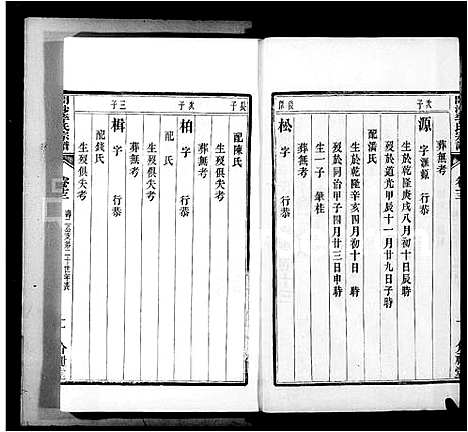 葬無考
次子
源 字滙源 行恭
生於乾隆庚戌八月初十日辰時
歿於道光甲辰十一月廿九日子時
配潘氏
生於乾隆辛亥四月初十日 時
歿於同治甲子四月廿三日申時
生一子 肇桂
葬無考
松 字 行恭
生歿俱失考
長子
配陳氏
葬無考
次子
柏 字 行恭
生歿俱失考
配 氏
葬無考
三子
楫 字 行恭
生歿俱失考
配錢氏
葬無考
卷十三